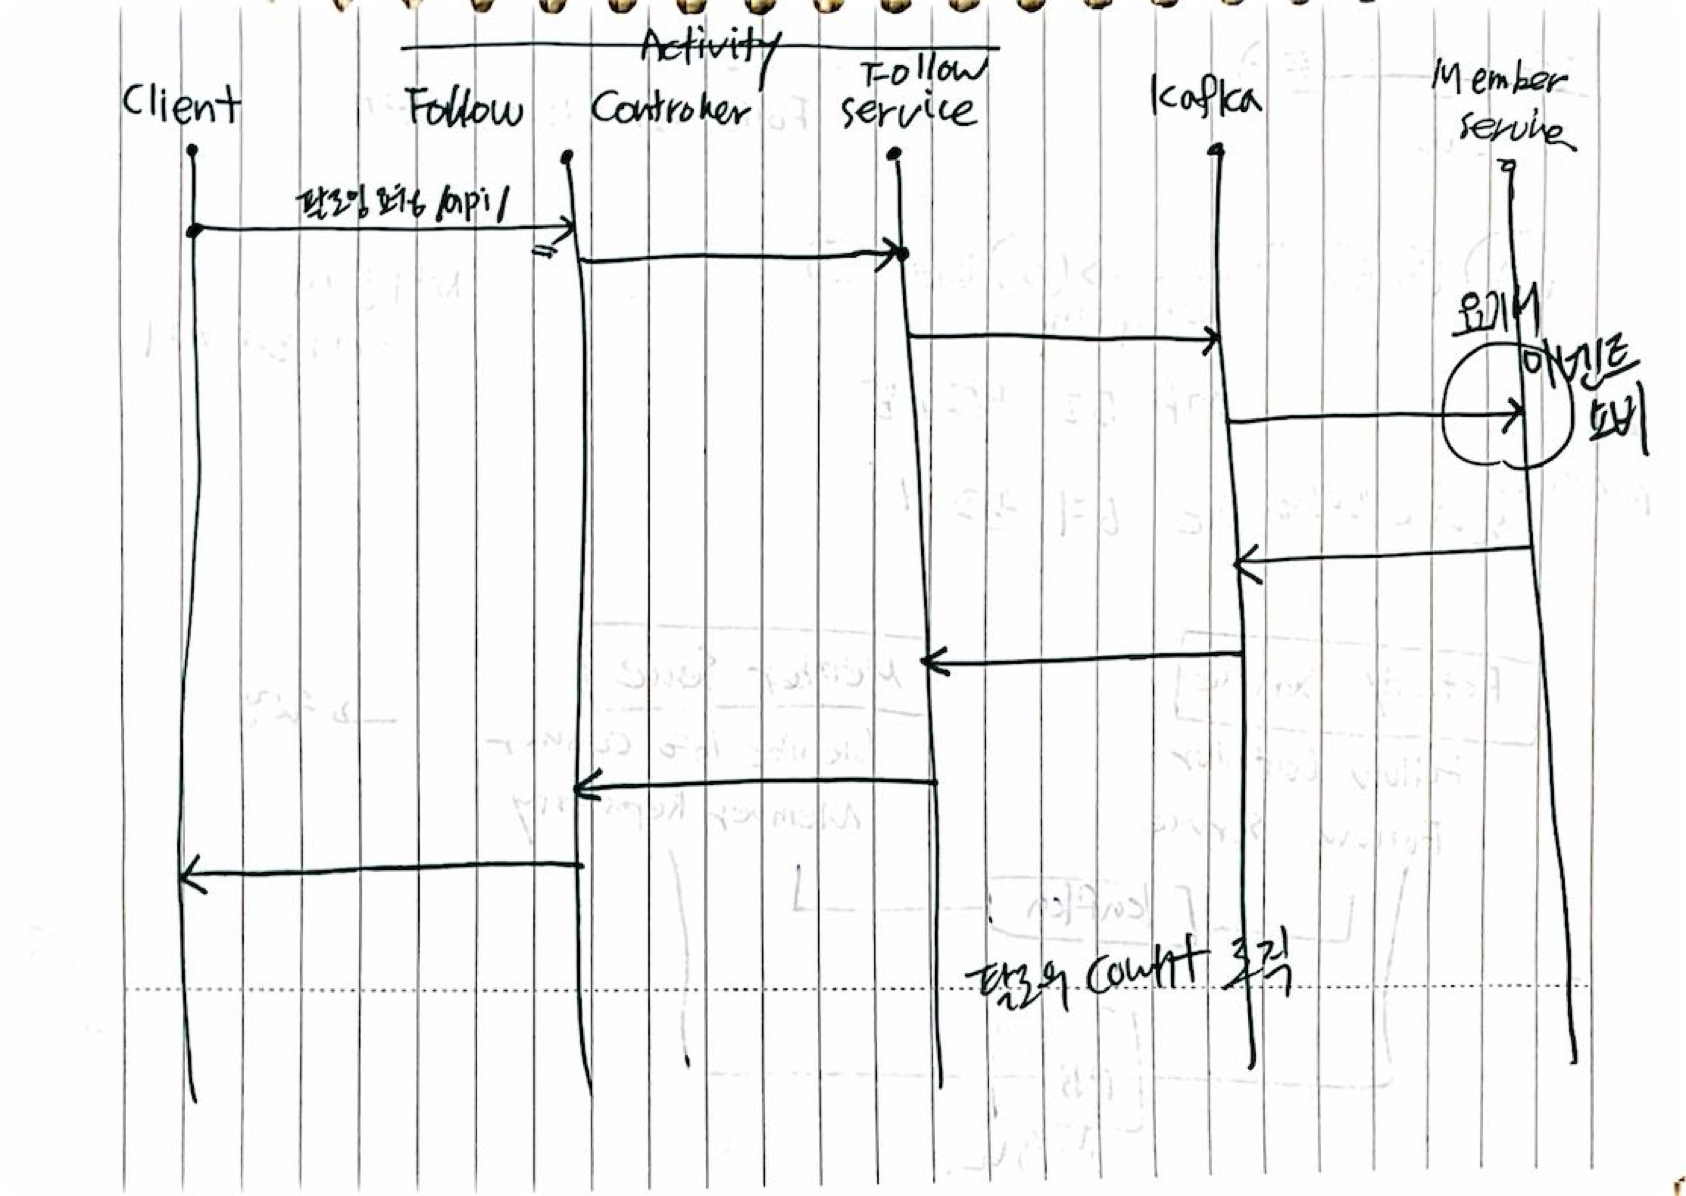 Activity
Client
Follow Controller
Follow
service
Kafka
Member
service
팔로잉 요청 /api/
요기서
이벤트
소비
팔로워 Count 로직